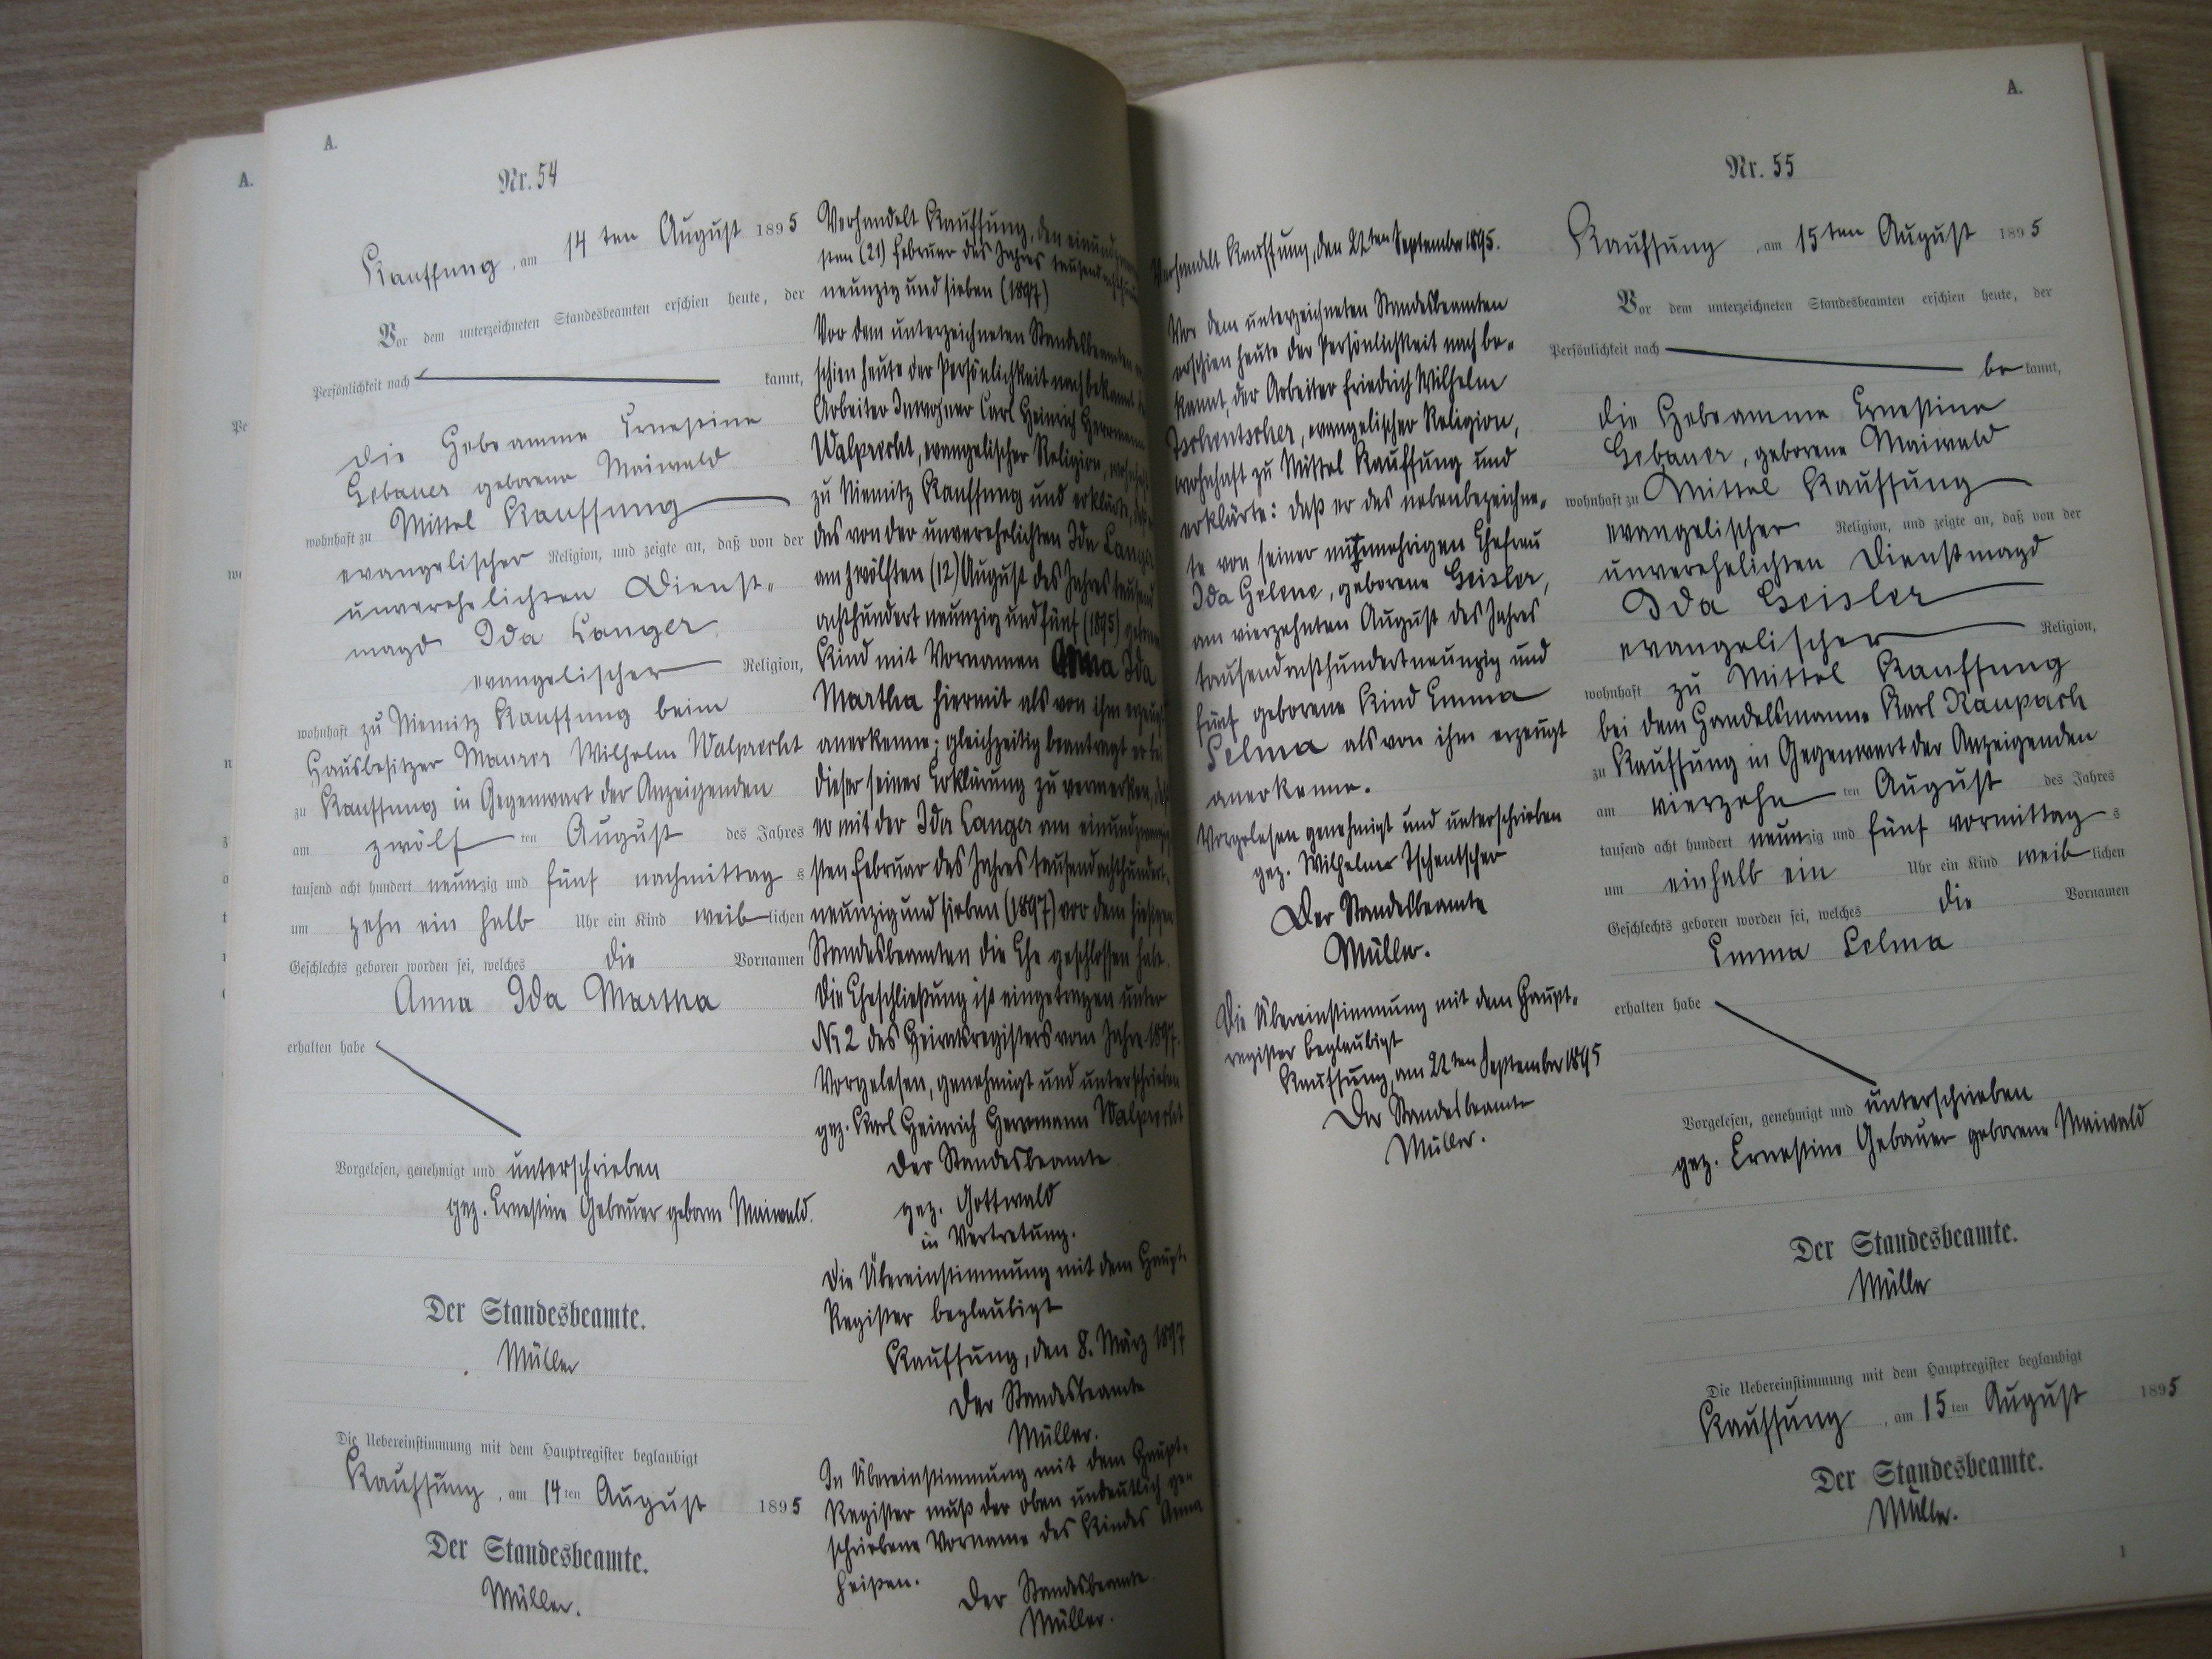 A.
Nr. 54
Kauffung, am 14 ten August 1895
Vor dem unterzeichneten Standesbeamten erschien heute, der
Persönlichkeit nach kannt,
die Hebeamme Ernestine
Gebauer geborene Maiwald
wohnhaft zu Mittel Kauffung
evangelischer Religion, und zeigte an, daß von der
unverehelichten Dienst-
magd Ida Langer
evangelischer Religion,
wohnhaft zu Niemitz Kauffung beim
Hausbesitzer Maurer Wilhelm Walprecht
zu Kauffung in Gegenwart der Anzeigenden
am zwölf ten August des Jahres
tausend acht hundert neunzig und fünf nachmittag s
um zehn ein halb Uhr ein Kind weiblichen
Geschlechts geboren worden sei, welches die Vornamen
Anna Ida Martha
erhalten habe
Vorgelesen, genehmigt und unterschrieben
gez. Ernestine Gebauer geborne Maiwald.
Der Standesbeamte.
Müller
Die Uebereinstimmung mit dem Hauptregister beglaubigt
Kauffung, am 14 ten August 1895
Der Standesbeamte.
Müller.
Verhandelt Kauffung, den
sten (21) Februar des Jahres
neunzig und sieben (1897)
Vor dem unterzeichneten Standesbeamten er
schien heute der Persönlichkeit nach bekannt
Arbeiter Inwohner Carl Heinrich Herrmann
Walprecht, evangelischer Religion,
zu Niemitz Kauffung und erklärte,
das von der unverehelichten Ida Langer
am zwölften (12) August des Jahres tausend
achthundert neunzig und fünf (1895) geborene
Kind mit Vornamen Anna Ida
Martha hiermit als von ihm erzeugt
anerkenne; gleichzeitig beantragt er bei
dieser seiner Erklärung zu vermerken,
er mit der Ida Langer am einundzwanzig
sten Februar des Jahres tausendachthundert-
neunzig und sieben (1897) vor dem hiesigen
Standesbeamten die Ehe geschlossen habe.
Die Eheschließung ist eingetragen unter
Nr 2 des Heiratsregisters vom Jahre 1897.
Vorgelesen, genehmigt und unterschrieben
gez. Karl Heinrich Herrmann Walprecht
Der Standesbeamte.
gez. Gottwald
in Vertretung.
Die Übereinstimmung mit dem Haupt-
Register beglaubigt
Kauffung, den 8. März 1897
Der Standesbeamte
Müller.
In Übereinstimmung mit dem Haupt-
Register muß der oben undeutlich ge-
schriebene Vorname des Kindes Anna
heißen.
Der Standesbeamte.
Müller.
Verhandelt Kauffung, den 22ten September 1895.
Vor dem unterzeichneten Standesbeamten
erschien heute der Persönlichkeit nach be-
kannt, der Arbeiter Friedrich Wilhelm
Tschentscher, evangelischer Religion,
wohnhaft zu Mittel Kauffung und
erklärte: daß er des nebenbezeichne-
te von seiner nunmehrigen Ehefrau
Ida Helene, geborene Geisler,
am vierzehnten August des Jahres
tausendachthundertneunzig und
fünf geborene Kind Emma
Selma als von ihm erzeugt
anerkenne.
Vorgelesen genehmigt und unterschrieben
gez. Wilhelm Tschentscher
Der Standesbeamte
Müller.
Die Übereinstimmung mit dem Haupt-
register beglaubigt
Kauffung, am 22ten September 1895
Der Standesbeamte
Müller.
A.
Nr. 55
Kauffung, am 15ten August 1895
Vor dem unterzeichneten Standesbeamten erschien heute, der
Persönlichkeit nach bekannt,
die Hebeamme Ernestine
Gebauer, geborene Maiwald
wohnhaft zu Mittel Kauffung
evangelischer Religion, und zeigte an, daß von der
unverehelichten Dienstmagd
Ida Geisler
evangelischer Religion,
wohnhaft zu Mittel Kauffung
bei dem Handelsmanne Karl Raupach
zu Kauffung in Gegenwart der Anzeigenden
am vierzehn ten August des Jahres
tausend acht hundert neunzig und fünf vormittag s
um einhalb ein Uhr ein Kind weiblichen
Geschlechts geboren worden sei, welches die Vornamen
Emma Selma
erhalten habe
Vorgelesen, genehmigt und unterschrieben
gez. Ernestine Gebauer geborene Maiwald
Der Standesbeamte.
Müller
Die Uebereinstimmung mit dem Hauptregister beglaubigt
Kauffung, am 15 ten August 1895
Der Standesbeamte.
Müller.
1